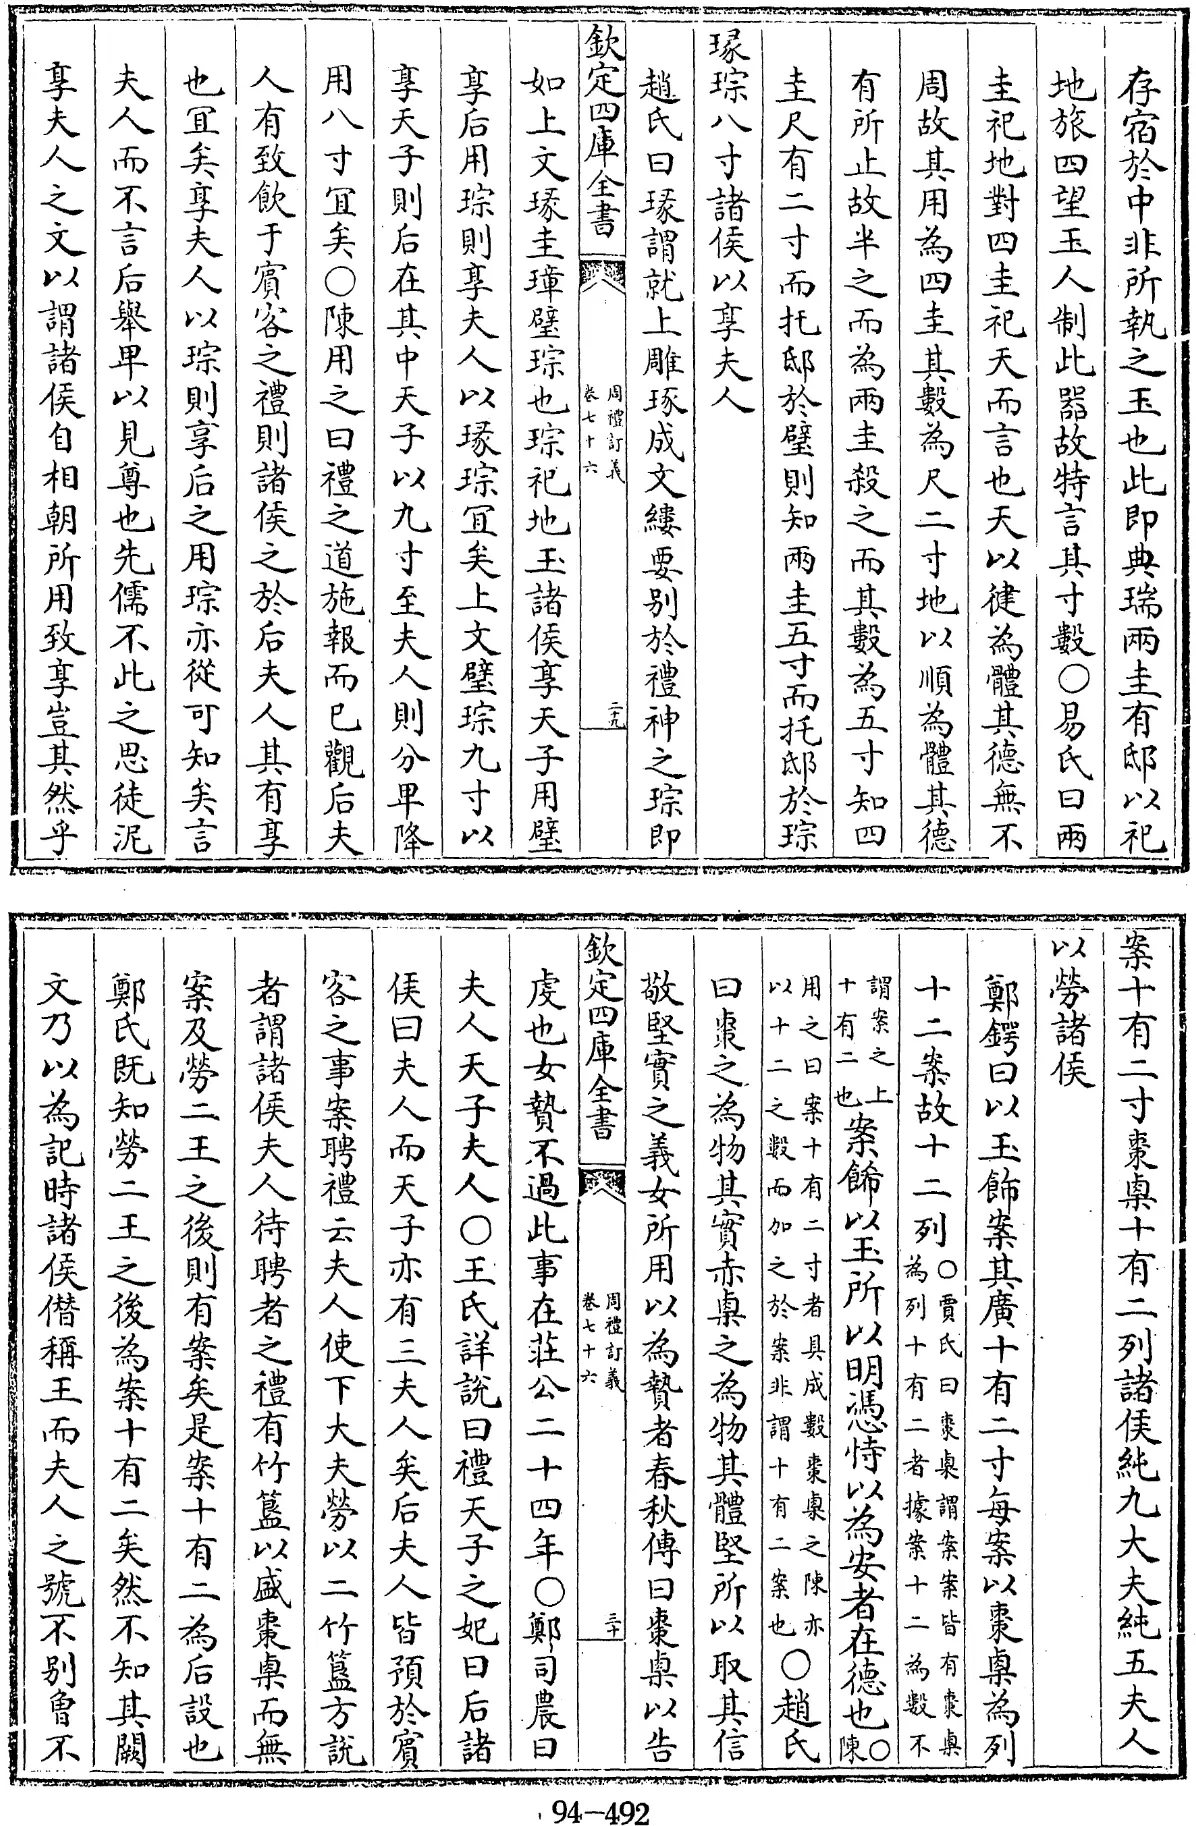 存宿於中非所執之玉也此即典瑞兩圭有邸以祀
地旅四望玉人制此器故特言其寸數○易氏曰兩
圭祀地對四圭祀天而言也天以健為體其德無不
周故其用為四圭其數為尺二寸地以順為體其德
有所止故半之而為兩圭殺之而其數為五寸知四
圭尺有二寸而托邸於璧則知兩圭五寸而托邸於琮
瑑琮八寸諸侯以享夫人
趙氏曰瑑謂就上雕琢成文縷要别於禮神之琮即
欽定四庫全書
周禮訂義
卷七十六
二十九
如上文瑑圭璋璧琮也琮祀地玉諸侯享天子用璧
享后用琮則享夫人以瑑琮宜矣上文璧琮九寸以
享天子則后在其中天子以九寸至夫人則分卑降
用八寸宜矣○陳用之曰禮之道施報而已觀后夫
人有致飲于賓客之禮則諸侯之於后夫人其有享
也宜矣享夫人以琮則享后之用琮亦從可知矣言
夫人而不言后舉卑以見尊也先儒不此之思徒泥
享夫人之文以謂諸侯自相朝所用致享豈其然乎
案十有二寸棗㮚十有二列諸侯純九大夫純五夫人
以勞諸侯
鄭鍔曰以玉飾案其廣十有二寸每案以棗㮚為列
十二案故十二列○賈氏曰棗㮚謂案案皆有棗㮚為列十有二者據案十二為數不
謂案之上十有二也案餙以玉所以明憑恃以為安者在德也○陳
用之曰案十有二寸者具成數棗㮚之陳亦以十二之數而加之於案非謂十有二案也○趙氏
曰棗之為物其實赤㮚之為物其體堅所以取其信
敬堅實之義女所用以為贄者春秋傳曰棗㮚以告
欽定四庫全書
周禮訂義
卷七十六
三十
虔也女贄不過此事在莊公二十四年○鄭司農曰
夫人天子夫人○王氏詳說曰禮天子之妃曰后諸
侯曰夫人而天子亦有三夫人矣后夫人皆預於賓
客之事案聘禮云夫人使下大夫勞以二竹簋方說
者謂諸侯夫人待聘者之禮有竹簋以盛棗㮚而無
案及勞二王之後則有案矣是案十有二為后設也
鄭氏既知勞二王之後為案十有二矣然不知其闕
文乃以為記時諸侯僣稱王而夫人之號不别魯不
94-492